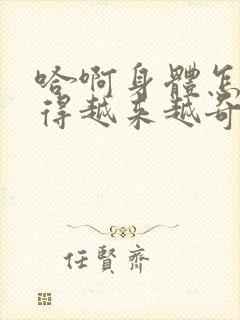 哈啊身體怎
得越来越奇
任賢齊